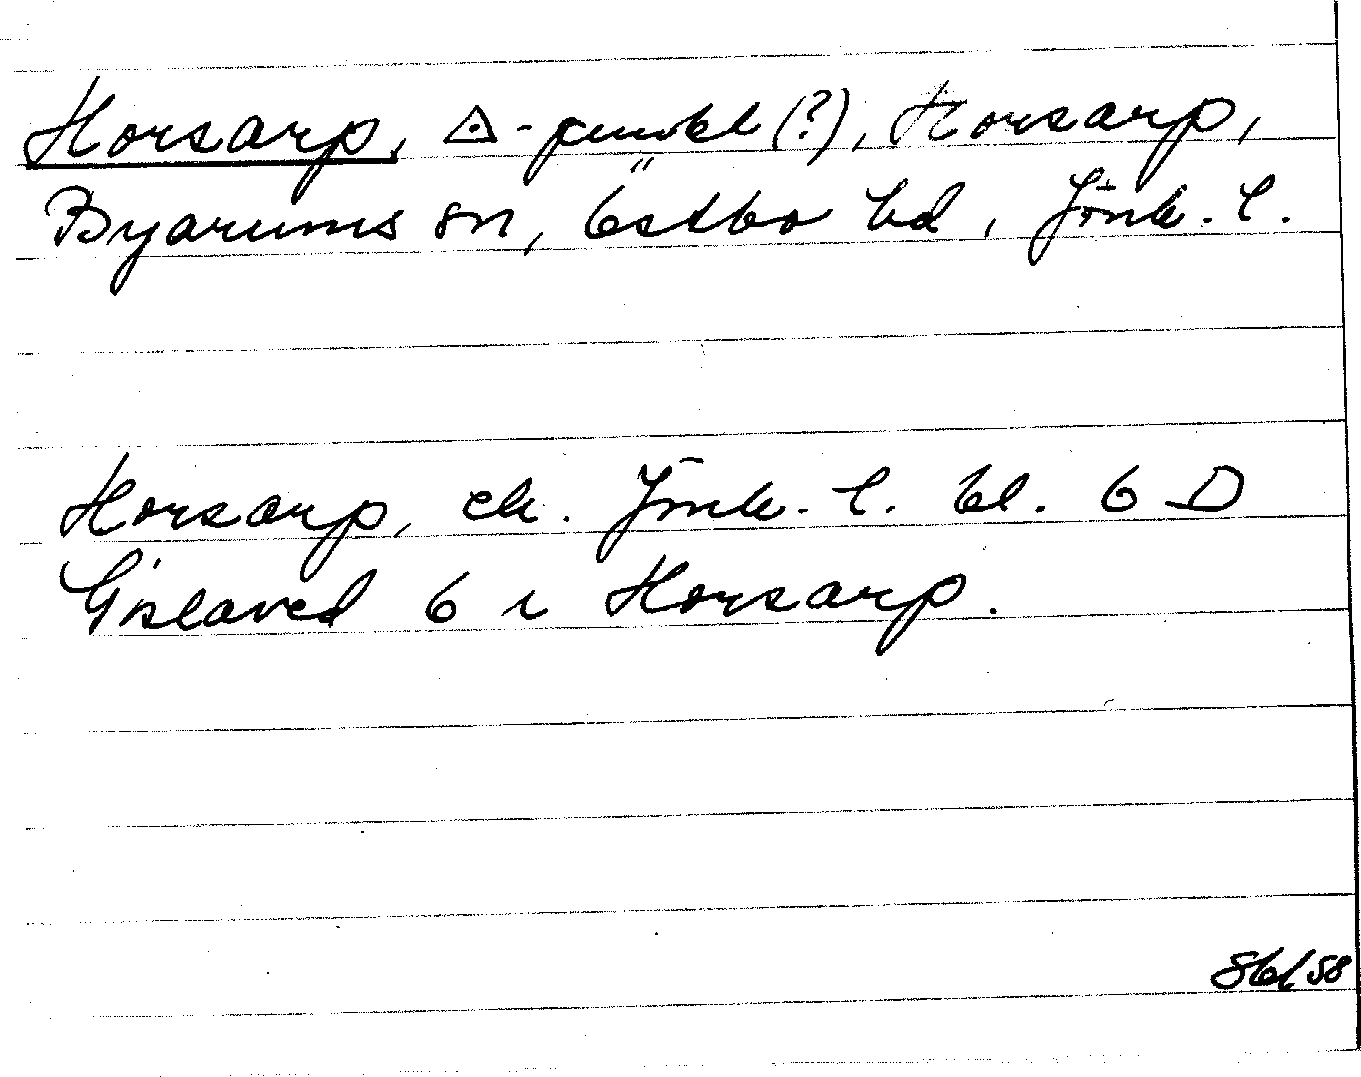 Horsarp, △-punkt (?), Horsarp,
Byarums sn, Östbo hd, Jönk. l.
Horsarp, ek. Jönk. l. bl. 6 D
Gislaved 6 i Horsarp.